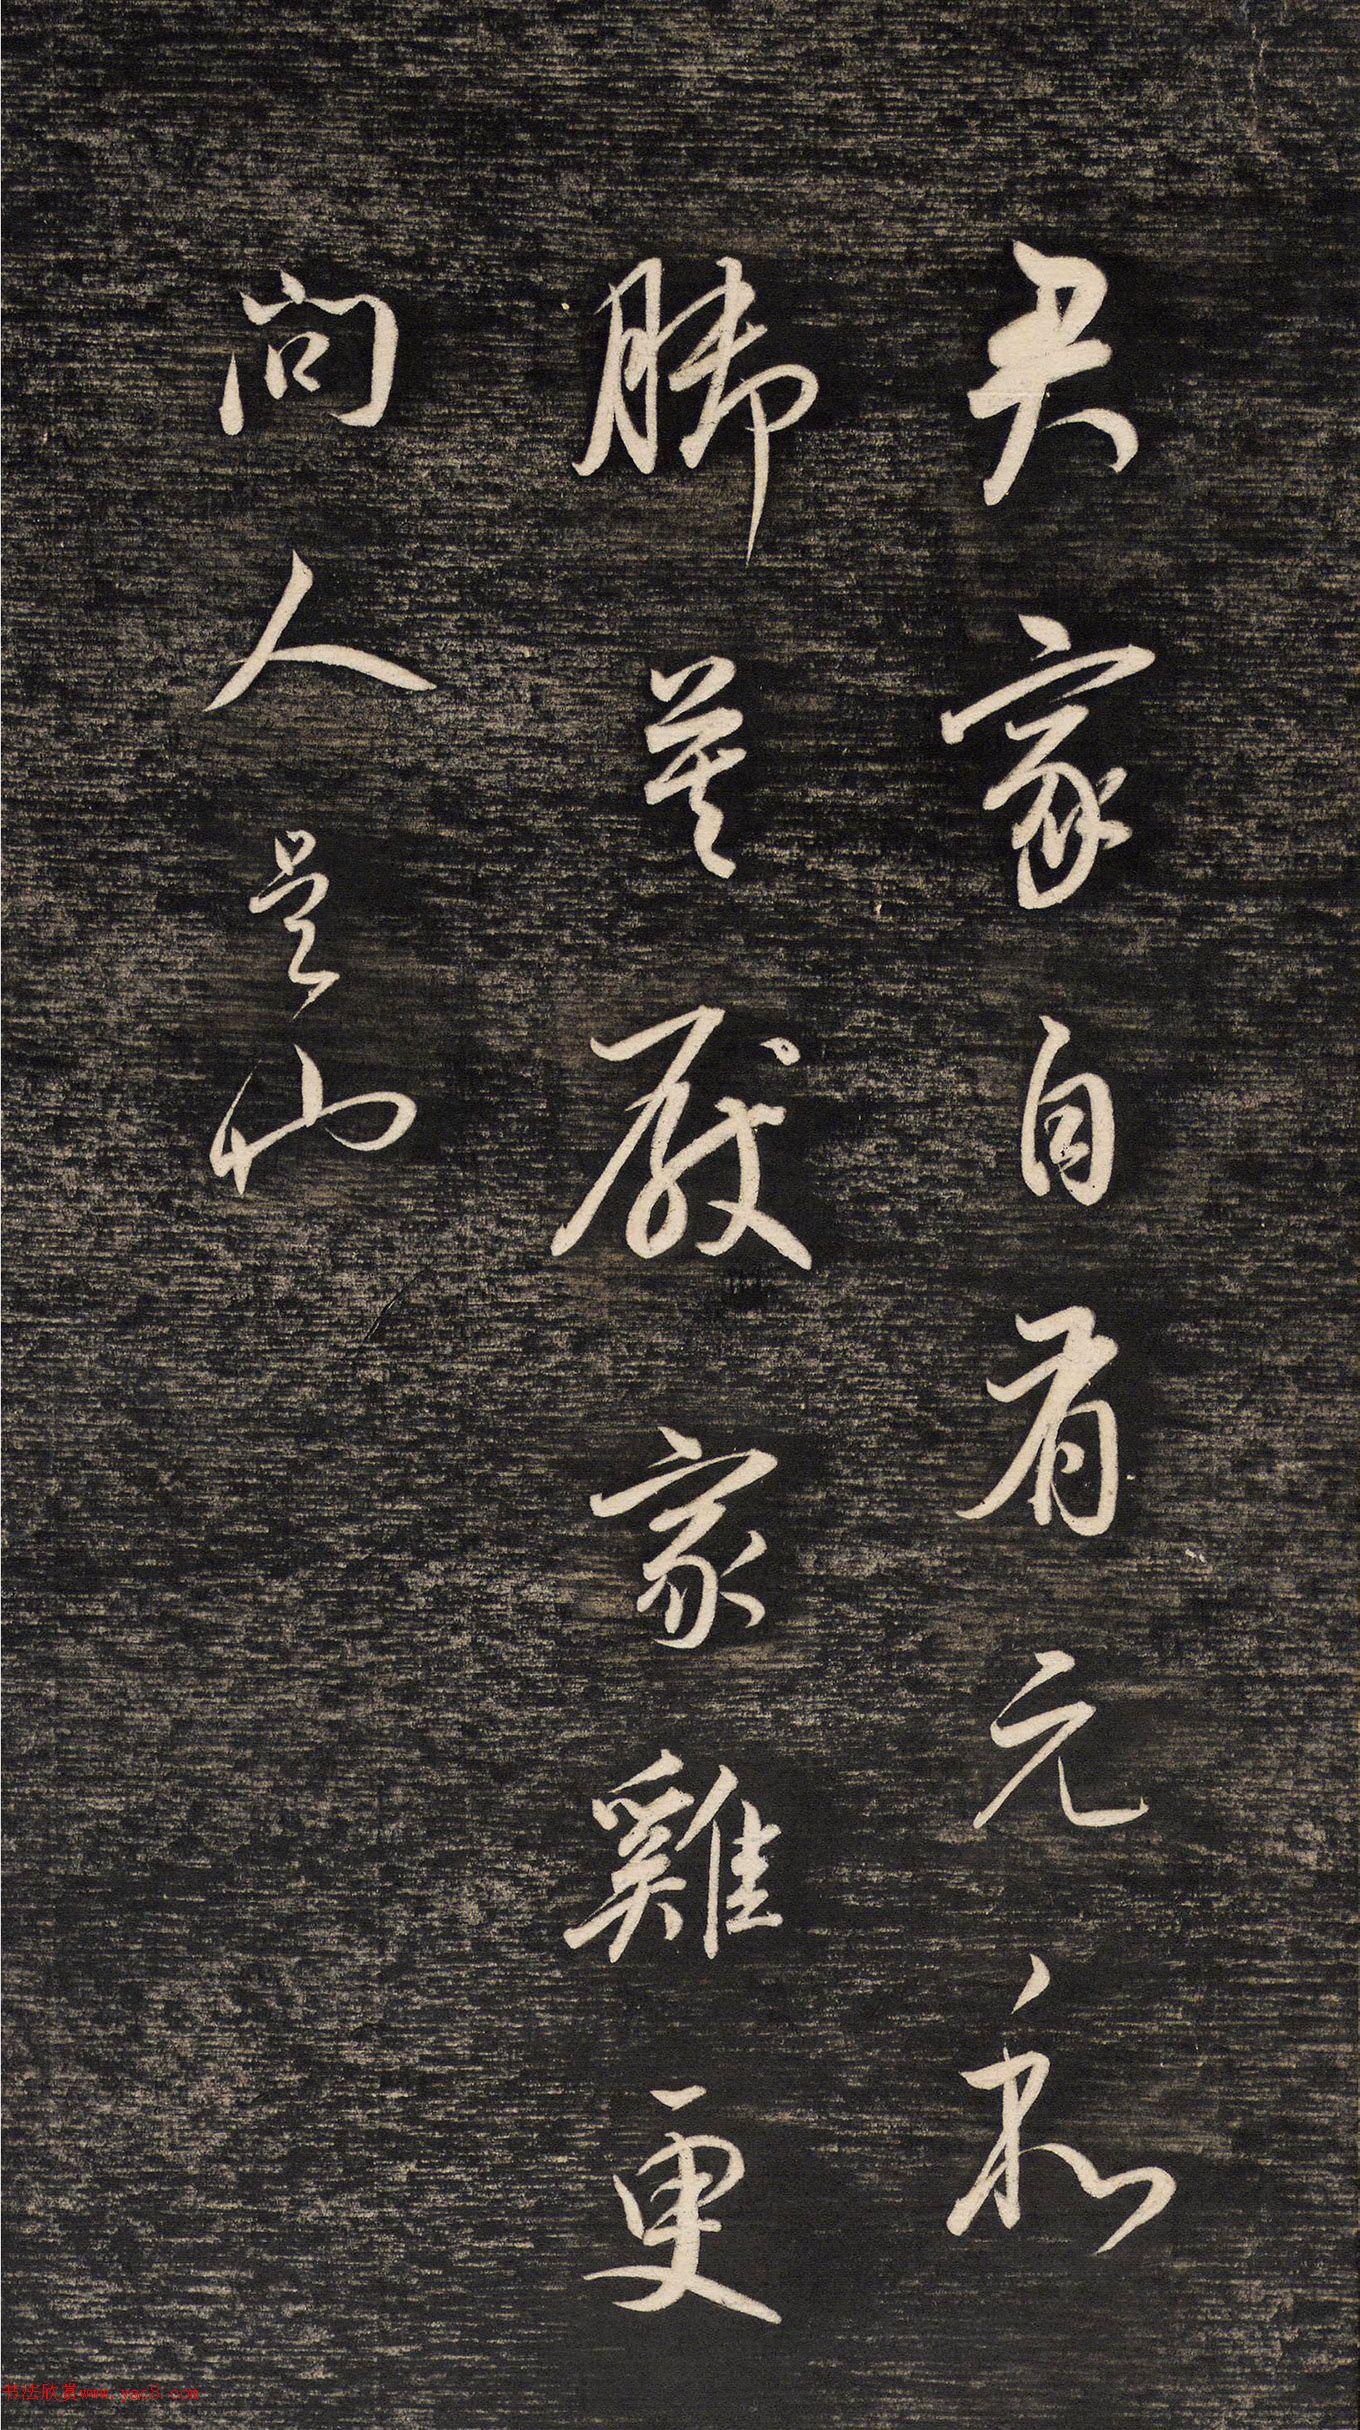 君家自有元和
脚莫厭家雞更
問人山
书法欣赏www.yac8.com